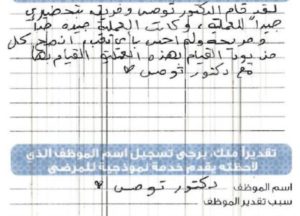 لقد قام الدكتور توصي وفريقه بتحضيري
جيداً للعملية، وكانت العملية جيدة جداً
و مريحة ولم احس بأي تعب، انصح كل
من يود القيام بهذه العملية القيام بها
مع دكتور توصي
تقديراً منك يرجى تسجيل اسم الموظف الذي
لاحظته يقدم خدمة نموذجية للمرضى
اسم الموظف دكتور توصي
سبب تقدير الموظف